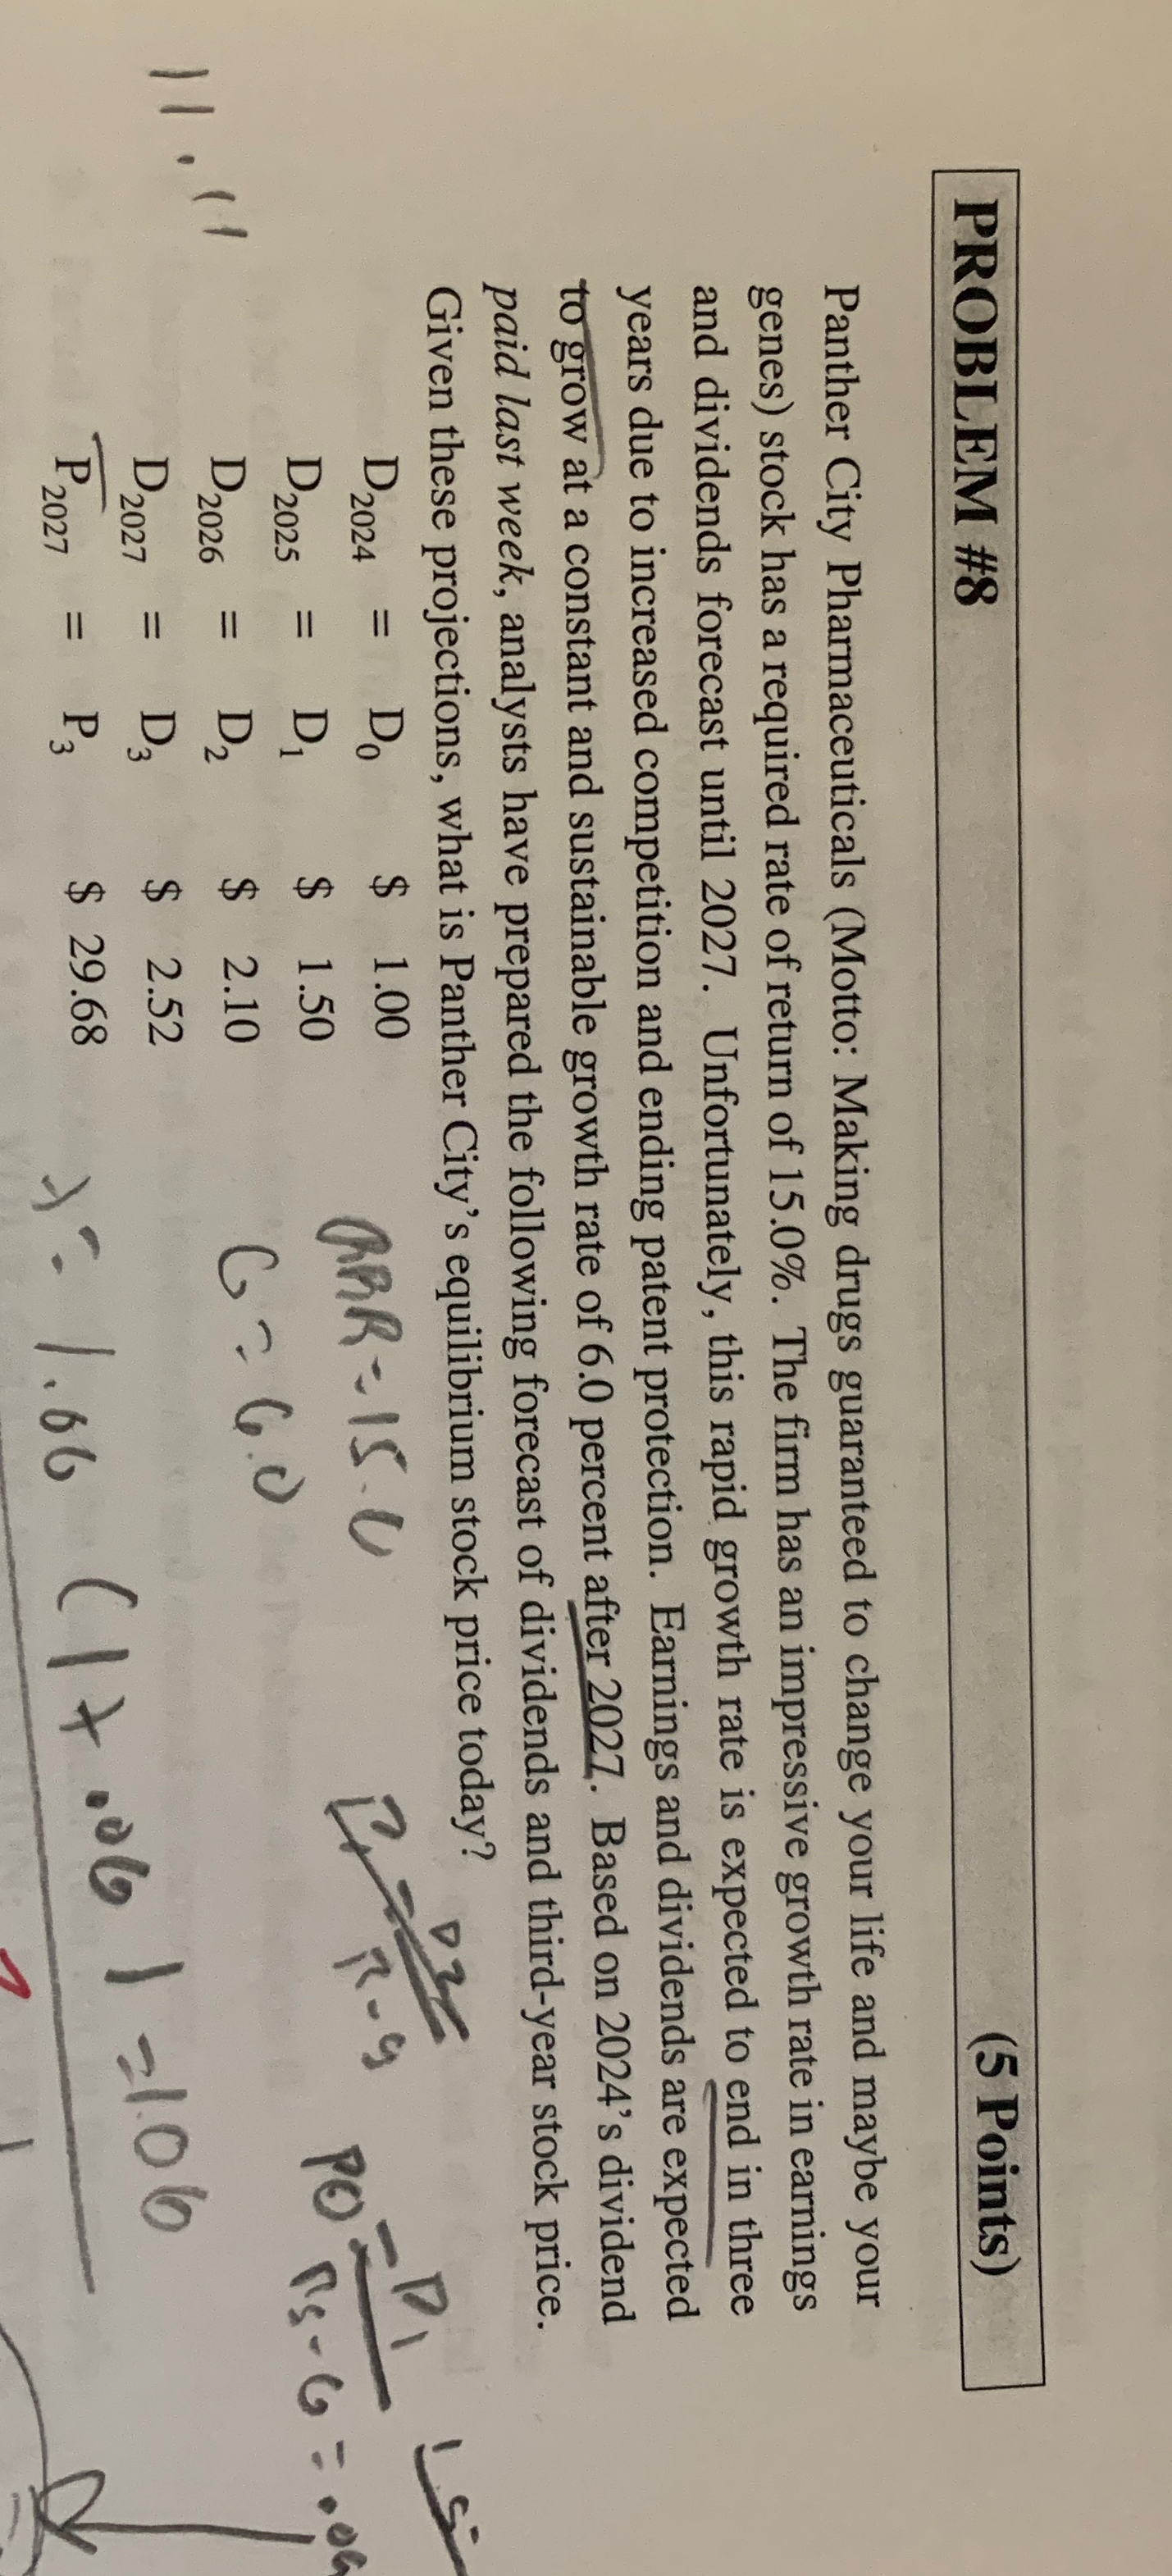 PROBLEM #8 (5 Points)
Panther City Pharmaceuticals (Motto: Making drugs guaranteed to change your life and maybe your
genes) stock has a required rate of return of 15.0%. The firm has an impressive growth rate in earnings
and dividends forecast until 2027. Unfortunately, this rapid growth rate is expected to end in three
years due to increased competition and ending patent protection. Earnings and dividends are expected
to grow at a constant and sustainable growth rate of 6.0 percent after 2027. Based on 2024's dividend
paid last week, analysts have prepared the following forecast of dividends and third-year stock price.
Given these projections, what is Panther City's equilibrium stock price today?
D2024 = D0 $ 1.00
D2025 = D1 $ 1.50
D2026 = D2 $ 2.10
D2027 = D3 $ 2.52
P2027 = P3 $ 29.68
RRR = 15.0
G = 6.0
R-g
P0 = D1
Rs-G = .09
11.11
(1+.06) = 1.06